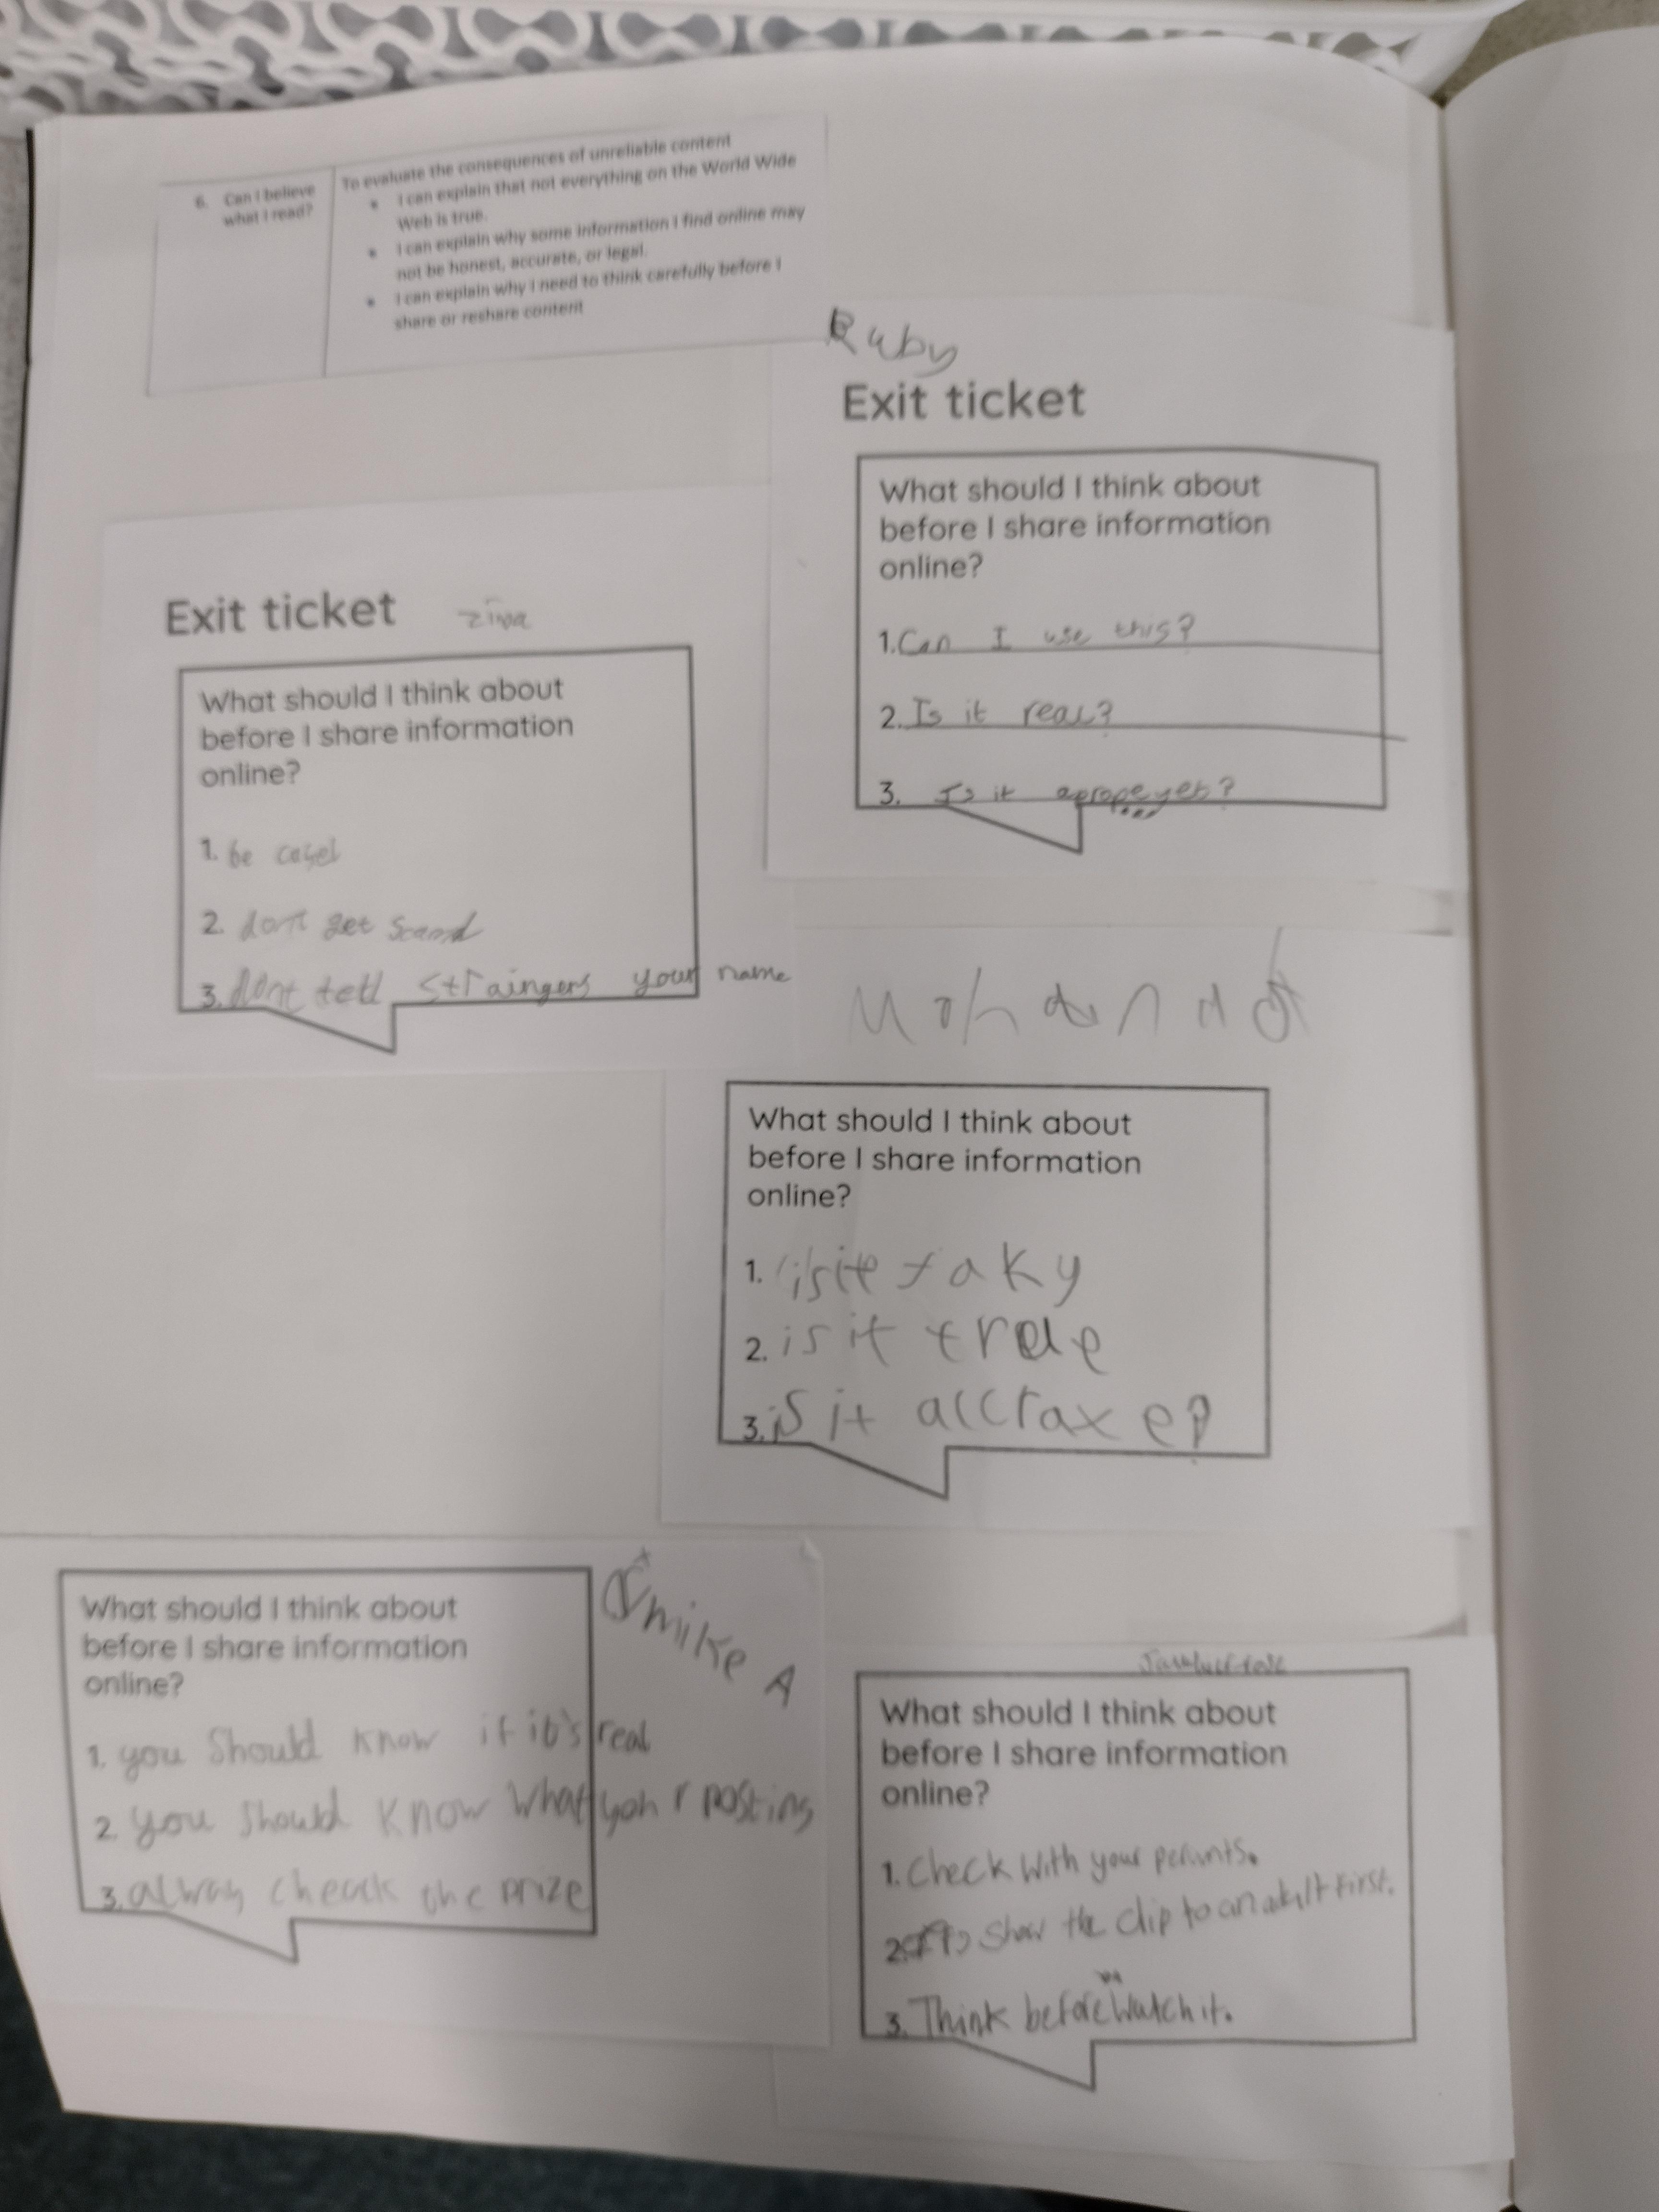 6. Can I believe
what I read?
To evaluate the consequences of unreliable content
• I can explain that not everything on the World Wide
Web is true.
• I can explain why some information I find online may
not be honest, accurate, or legal.
• I can explain why I need to think carefully before I
share or reshare content
Ruby
Exit ticket
What should I think about
before I share information
online?
1. Can I use this?
2. Is it real?
3. Is it apropeyet?
Exit ticket
What should I think about
before I share information
online?
1. be
2. dont get
3. dont tell straingers your name
What should I think about
before I share information
online?
1. is it
2. is it true
3. is it
mike A
What should I think about
before I share information
online?
1. you Should know if it's real
2. you should know what you r posting
3. alway cheack the prize
What should I think about
before I share information
online?
1. Check with your perunts.
2. show the clip to an adult first.
3. Think before you watch it.